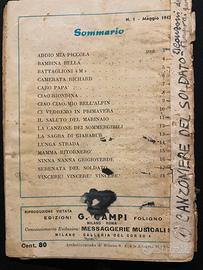 N. 1 - Maggio 194
Sommario
ADDIO MIA PICCOLA
BAMBINA BELLA
BATTAGLIONI «M»
CAMERATA RICHARD
CARO PAPA'
CIAO BIONDINA
CIAO CIAO MIO BELL'ALPIN
CI VEDREMO IN PRIMAVERA
IL SALUTO DEL MARINAIO
LA CANZONE DEI SOMMERGIBILI
LA SAGRA DI GIARABUB
LUNGA STRADA
MAMMA RITORNERO'
NINNA NANNA GRIGIOVERDE
SERENATA DEL SOLDATO
VINCERE! VINCERE! VINCERE!
RIPRODUZIONE VIETATA
EDIZIONI G. CAMPI FOLIGNO
MILANO - ROMA
Concessionaria Esclusiva: MESSAGGERIE MUSICALI
MILANO - GALLERIA DEL CORSO 4
Cent. 80
CANZONIERE DEL SOLDATO